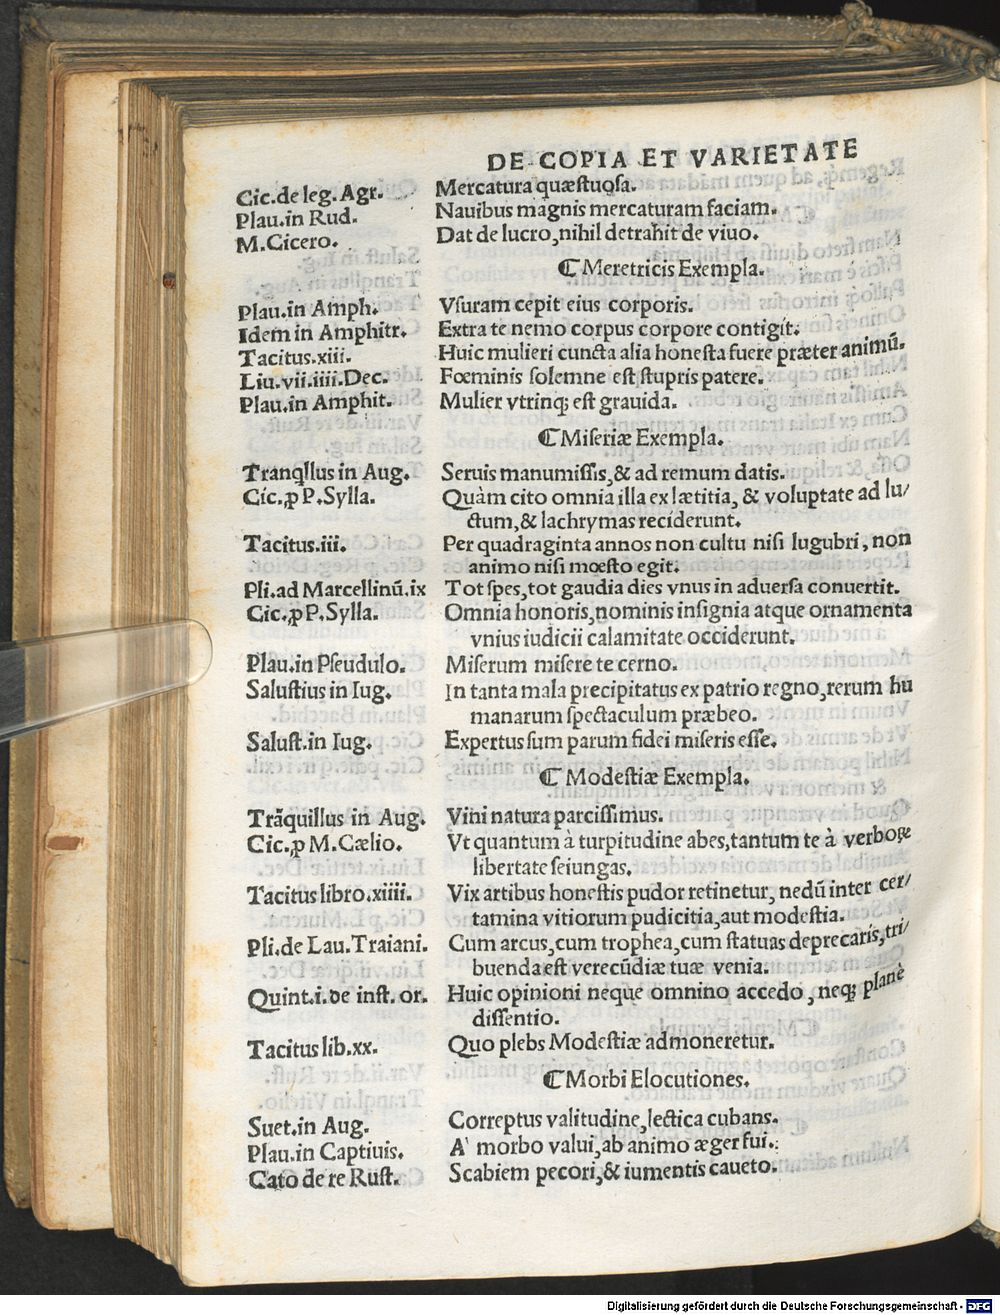 DE COPIA ET VARIETATE
Cic.de leg. Agr. Mercatura quæstuosa.
Plau.in Rud. Nauibus magnis mercaturam faciam.
M.Cicero. Dat de lucro, nihil detrahit de viuo.
⁋ Meretricis Exempla.
Plau.in Amph. Vsuram cepit eius corporis.
Idem in Amphitr. Extra te nemo corpus corpore contigit.
Tacitus.xiii. Huic mulieri cuncta alia honesta fuere præter animū.
Liu.vii.iiii.Dec. Fœminis solemne est stupris patere.
Plau.in Amphit. Mulier vtrinqꝫ est grauida.
⁋ Miseriæ Exempla.
Tranqllus in Aug. Seruis manumissis, & ad remum datis.
Cic.ꝓ P.Sylla. Quàm cito omnia illa ex lætitia, & voluptate ad lu/
ctum, & lachrymas reciderunt.
Tacitus.iii. Per quadraginta annos non cultu nisi lugubri, non
animo nisi mœsto egit.
Pli.ad Marcellinū.ix Tot spes, tot gaudia dies vnus in aduersa conuertit.
Cic.ꝓ P.Sylla. Omnia honoris, nominis insignia atque ornamenta
vnius iudicii calamitate occiderunt.
Plau.in Pseudulo. Miserum misere te cerno.
Salustius in Iug. In tanta mala precipitatus ex patrio regno, rerum hu
manarum spectaculum præbeo.
Salust.in Iug. Expertus sum parum fidei miseris esse.
⁋ Modestiæ Exempla.
Trāquillus in Aug. Vini natura parcissimus.
Cic.ꝓ M.Cælio. Vt quantum à turpitudine abes, tantum te à verboꝝ
libertate seiungas.
Tacitus libro.xiiii. Vix artibus honestis pudor retinetur, nedū inter cer/
tamina vitiorum pudicitia, aut modestia.
Pli.de Lau.Traiani. Cum arcus, cum trophea, cum statuas deprecaris, tri/
buenda est verecūdiæ tuæ venia.
Quint.i.de inst. or. Huic opinioni neque omnino accedo, neqꝫ planè
dissentio.
Tacitus lib.xx. Quo plebs Modestiæ admoneretur.
⁋ Morbi Elocutiones.
Suet.in Aug. Correptus valitudine, lectica cubans.
Plau.in Captiuis. A' morbo valui, ab animo æger fui.
Cato de re Rust. Scabiem pecori, & iumentis caueto.
Digitalisierung gefördert durch die Deutsche Forschungsgemeinschaft - DFG